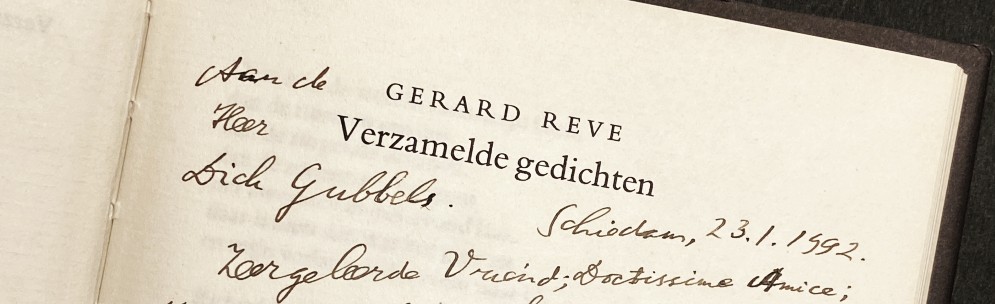 Aan de
GERARD REVE
Heer
Verzamelde gedichten
Dick Gubbels.
Schiedam, 23.1.1992.
Zeergeleerde Vriend; Doctissime Amice;